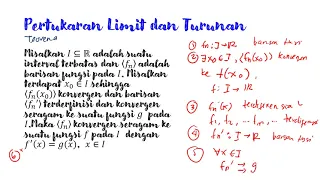 Pertukaran Limit dan Turunan
Teorema
Misalkan I ⊆ ℝ adalah suatu
interval terbatas dan ⟨fn⟩ adalah
barisan fungsi pada I. Misalkan
terdapat x₀ ∈ I sehingga
⟨fn(x₀)⟩ konvergen dan barisan
⟨fn'⟩ terdefinisi dan konvergen
seragam ke suatu fungsi g pada
I. Maka ⟨fn⟩ konvergen seragam ke
suatu fungsi f pada I dengan
f'(x) = g(x), x ∈ I
⑥
① fn: I → ℝ barisan fungsi
② ∃ x₀ ∈ I, ⟨fn(x₀)⟩ konvergen
ke f(x₀)
f: I → ℝ
③ fn'(x) terdefinisi
f₁, f₂, ..., fn, ...
④ fn': I → ℝ barisan fungsi
⑤ ∀x ∈ I
fn' → g